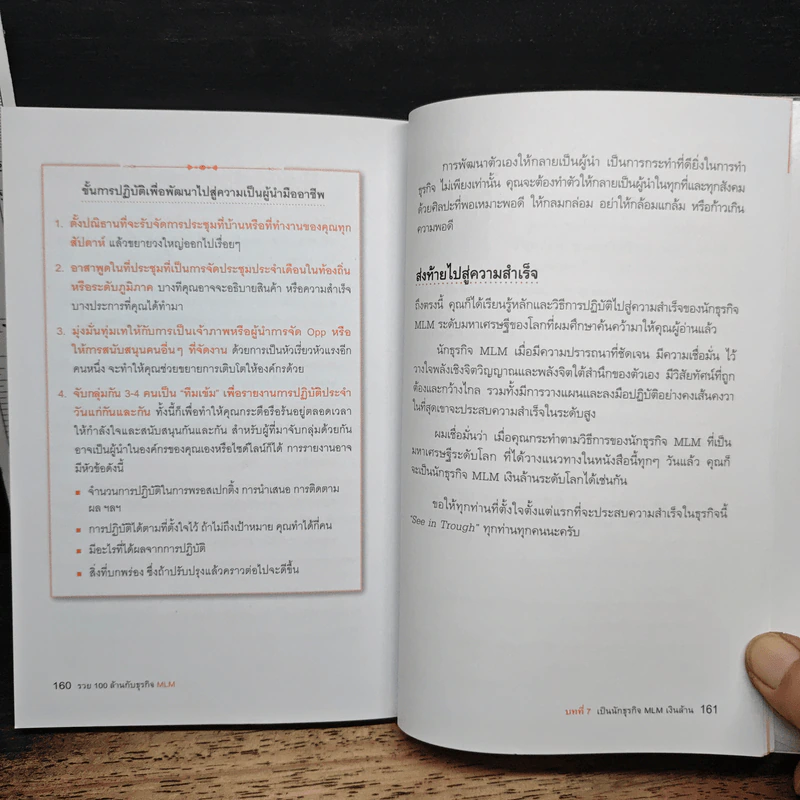 ขั้นการปฏิบัติเพื่อพัฒนาไปสู่ความเป็นผู้นำมืออาชีพ
1. ตั้งปณิธานที่จะรับจัดการประชุมที่บ้านหรือที่ทำงานของคุณทุก
สัปดาห์ แล้วขยายวงใหญ่ออกไปเรื่อยๆ
2. อาสาพูดในที่ประชุมที่เป็นการจัดประชุมประจำเดือนในท้องถิ่น
หรือระดับภูมิภาค บางทีคุณอาจจะอธิบายสินค้า หรือความสำเร็จ
บางประการที่คุณได้ทำมา
3. มุ่งมั่นทุ่มเทให้กับการเป็นเจ้าภาพหรือผู้นำการจัด Opp หรือ
ให้การสนับสนุนคนอื่นๆ ที่จัดงาน ด้วยการเป็นหัวเรี่ยวหัวแรงอีก
คนหนึ่ง จะทำให้คุณช่วยขยายการเติบโตให้องค์กรด้วย
4. จับกลุ่มกัน 3-4 คนเป็น "ทีมเข้ม" เพื่อรายงานการปฏิบัติประจำ
วันแก่กันและกัน ทั้งนี้ก็เพื่อทำให้คุณกระตือรือร้นอยู่ตลอดเวลา
ให้กำลังใจและสนับสนุนกันและกัน สำหรับผู้ที่มาจับกลุ่มด้วยกัน
อาจเป็นผู้นำในองค์กรของคุณเองหรือไซด์ไลน์ก็ได้ การรายงานอาจ
มีหัวข้อดังนี้
▪ จำนวนการปฏิบัติในการพรอสเปกติ้ง การนำเสนอ การติดตาม
ผล ฯลฯ
▪ การปฏิบัติได้ตามที่ตั้งใจไว้ ถ้าไม่ถึงเป้าหมาย คุณทำได้กี่คน
▪ มีอะไรที่ได้ผลจากการปฏิบัติ
▪ สิ่งที่บกพร่อง ซึ่งถ้าปรับปรุงแล้วคราวต่อไปจะดีขึ้น
160 รวย 100 ล้านกับธุรกิจ MLM
การพัฒนาตัวเองให้กลายเป็นผู้นำ เป็นการกระทำที่ดียิ่งในการทำ
ธุรกิจ ไม่เพียงเท่านั้น คุณจะต้องทำตัวให้กลายเป็นผู้นำในทุกที่และทุกสังคม
ด้วยศิลปะที่พอเหมาะพอดี ให้กลมกล่อม อย่าให้กล้อมแกล้ม หรือก้าวเกิน
ความพอดี
ส่งท้ายไปสู่ความสำเร็จ
ถึงตรงนี้ คุณก็ได้เรียนรู้หลักและวิธีการปฏิบัติไปสู่ความสำเร็จของนักธุรกิจ
MLM ระดับมหาเศรษฐีของโลกที่ผมศึกษาค้นคว้ามาให้คุณผู้อ่านแล้ว
นักธุรกิจ MLM เมื่อมีความปรารถนาที่ชัดเจน มีความเชื่อมั่น ไว้
วางใจพลังเชิงจิตวิญญาณและพลังจิตใต้สำนึกของตัวเอง มีวิสัยทัศน์ที่ถูก
ต้องและกว้างไกล รวมทั้งมีการวางแผนและลงมือปฏิบัติอย่างคงเส้นคงวา
ในที่สุดเขาจะประสบความสำเร็จในระดับสูง
ผมเชื่อมั่นว่า เมื่อคุณกระทำตามวิธีการของนักธุรกิจ MLM ที่เป็น
มหาเศรษฐีระดับโลก ที่ได้วางแนวทางในหนังสือนี้ทุกๆ วันแล้ว คุณก็
จะเป็นนักธุรกิจ MLM เงินล้านระดับโลกได้เช่นกัน
ขอให้ทุกท่านที่ตั้งใจตั้งแต่แรกที่จะประสบความสำเร็จในธุรกิจนี้
"See in Trough" ทุกท่านทุกคนนะครับ
บทที่ 7 เป็นนักธุรกิจ MLM เงินล้าน 161